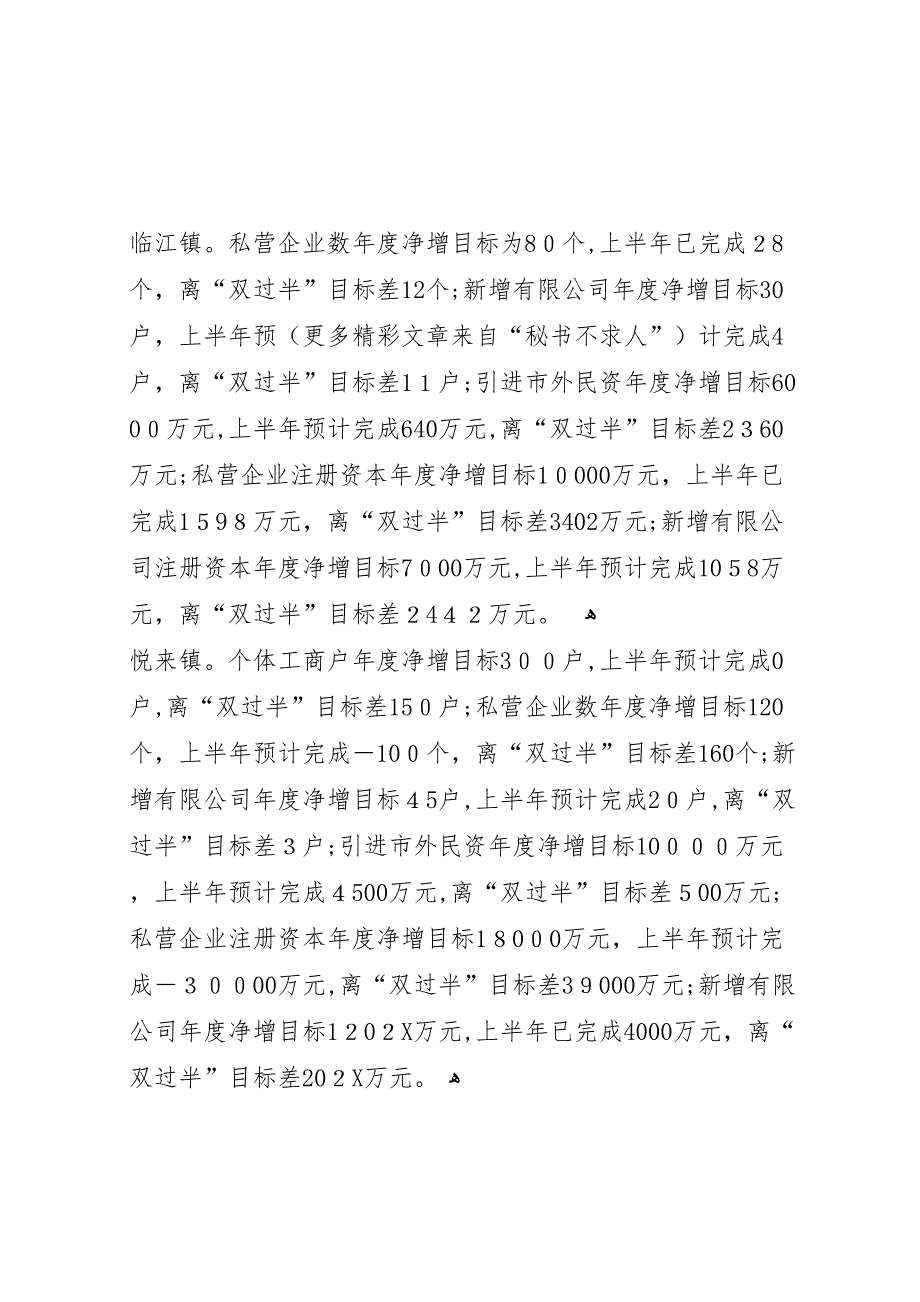 临江镇。私营企业数年度净增目标为80个,上半年已完成28
个，离“双过半”目标差12个;新增有限公司年度净增目标30
户，上半年预（更多精彩文章来自“秘书不求人”）计完成4
户，离“双过半”目标差11户;引进市外民资年度净增目标60
00万元,上半年预计完成640万元,离“双过半”目标差2360
万元;私营企业注册资本年度净增目标10000万元，上半年已
完成1598万元，离“双过半”目标差3402万元;新增有限公
司注册资本年度净增目标7000万元,上半年预计完成1058万
元，离“双过半”目标差2442万元。 ﻫ
悦来镇。个体工商户年度净增目标300户,上半年预计完成0
户,离“双过半”目标差150户;私营企业数年度净增目标120
个，上半年预计完成－100个，离“双过半”目标差160个;新
增有限公司年度净增目标45户,上半年预计完成20户,离“双
过半”目标差3户;引进市外民资年度净增目标10000万元
，上半年预计完成4500万元,离“双过半”目标差500万元;
私营企业注册资本年度净增目标18000万元，上半年预计完
成－30000万元,离“双过半”目标差39000万元;新增有限
公司年度净增目标1202X万元,上半年已完成4000万元，离“
双过半”目标差202X万元。 ﻫ